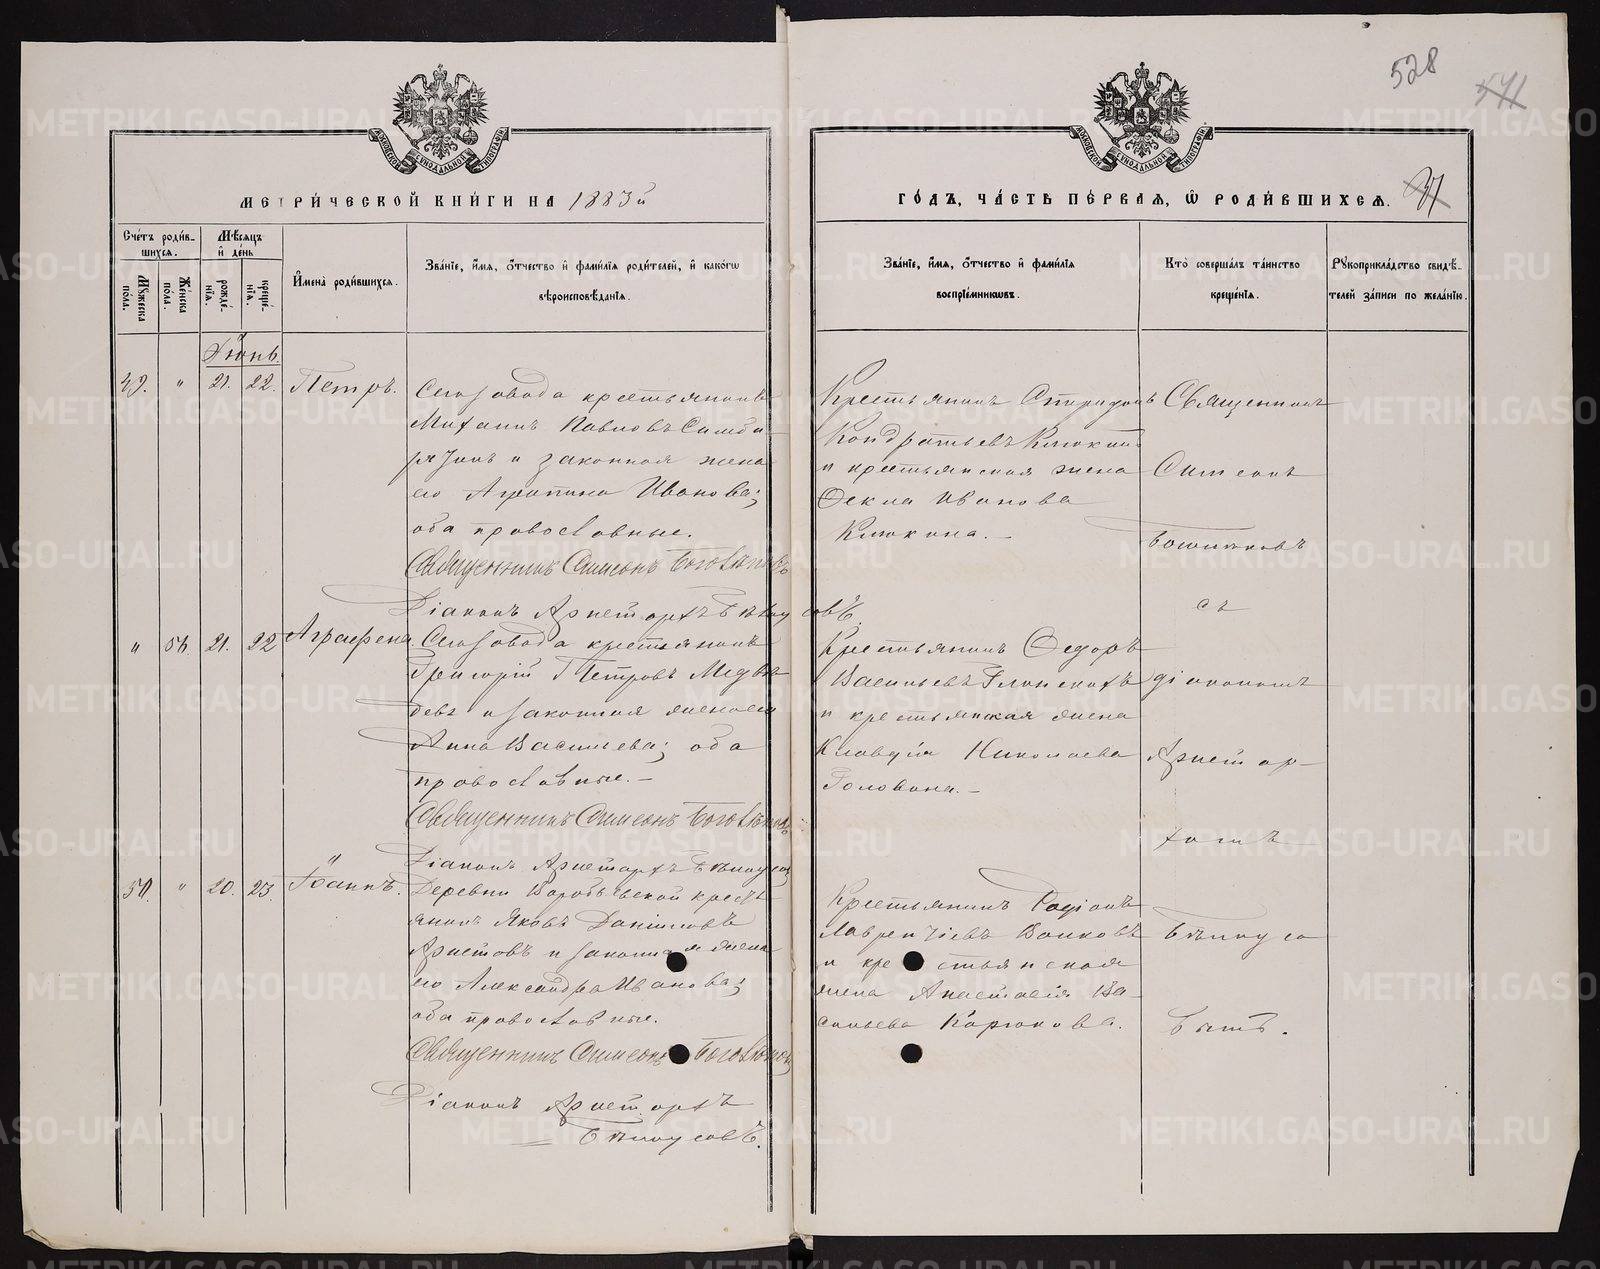 528
541
МОСКОВСКОЙ СѴНОДАЛЬНОЙ ТИПОГРАФІИ
МОСКОВСКОЙ СѴНОДАЛЬНОЙ ТИПОГРАФІИ
МЕТРИ́ЧЕСКОЙ КНИ́ГИ НА 1883й
ГО́ДЪ, ЧА́СТЬ ПЕ́РВАЯ, Ѡ РОДИ́ВШИХСЯ.
Сче́тъ роди́в-
шихся.
Мѣ́сяцъ
и҆ де́нь
Мꙋ́жеска по́ла.
Же́нска по́ла.
рожде́-
нїя.
креще́-
нїя.
И҆мена̀ роди́вшихся.
Зва́нїе, и҆́мя, ѻ҆́тчество и҆ фами́лїя роди́телей, и҆ како́гѡ
вѣроисповѣ́данїя.
Зва́нїе, и҆́мя, ѻ҆́тчество и҆ фами́лїя
воспрїе́мниковъ.
Кто̀ соверша́лъ та́инство
креще́нїя.
Рꙋкоприкла́дство свидѣ́-
телей за́писи по жела́нїю.
Іюнь.
49. " 21. 22. Петръ.
Сего завода крестьянинъ
Михаилъ Павловъ Симба-
рягинъ и законная жена
его Агрипина Иванова;
оба православные.
Священникъ Симеонъ Боголѣповъ
Діаконъ Аристархъ Бѣлоусовъ.
Крестьянинъ Спиридонъ
Кондратьевъ Клюкинъ
и крестьянская жена
Ѳекла Иванова
Клюкина.
Священникъ
Симеонъ
съ
" 54. 21. 22 Аграфена.
Сего завода крестьянинъ
Григорій Петровъ Медвѣ-
девъ и законная жена его
Анна Васильева; оба
православные.
Священникъ Симеонъ Боголѣповъ
Діаконъ Аристархъ Бѣлоусовъ
Крестьянинъ Ѳедоръ
Васильевъ
и крестьянская жена
Клавдія Николаева
Голована.
діакономъ
Аристар-
хомъ
50. " 20. 23. Іоаннъ.
Деревни Воробьевской кресть-
янинъ Яковъ Даниловъ
Аристовъ и законная жена
его Александра Иванова;
оба православные.
Священникъ Симеонъ Боголѣповъ
Діаконъ Аристархъ
Бѣлоусовъ.
Крестьянинъ Родіонъ
Лаврентіевъ Волковъ
и крестьянская
жена Анастасія Ва-
сильева Карюкова.
Бѣлоусо
вымъ.
METRIKI.GASO-URAL.RU